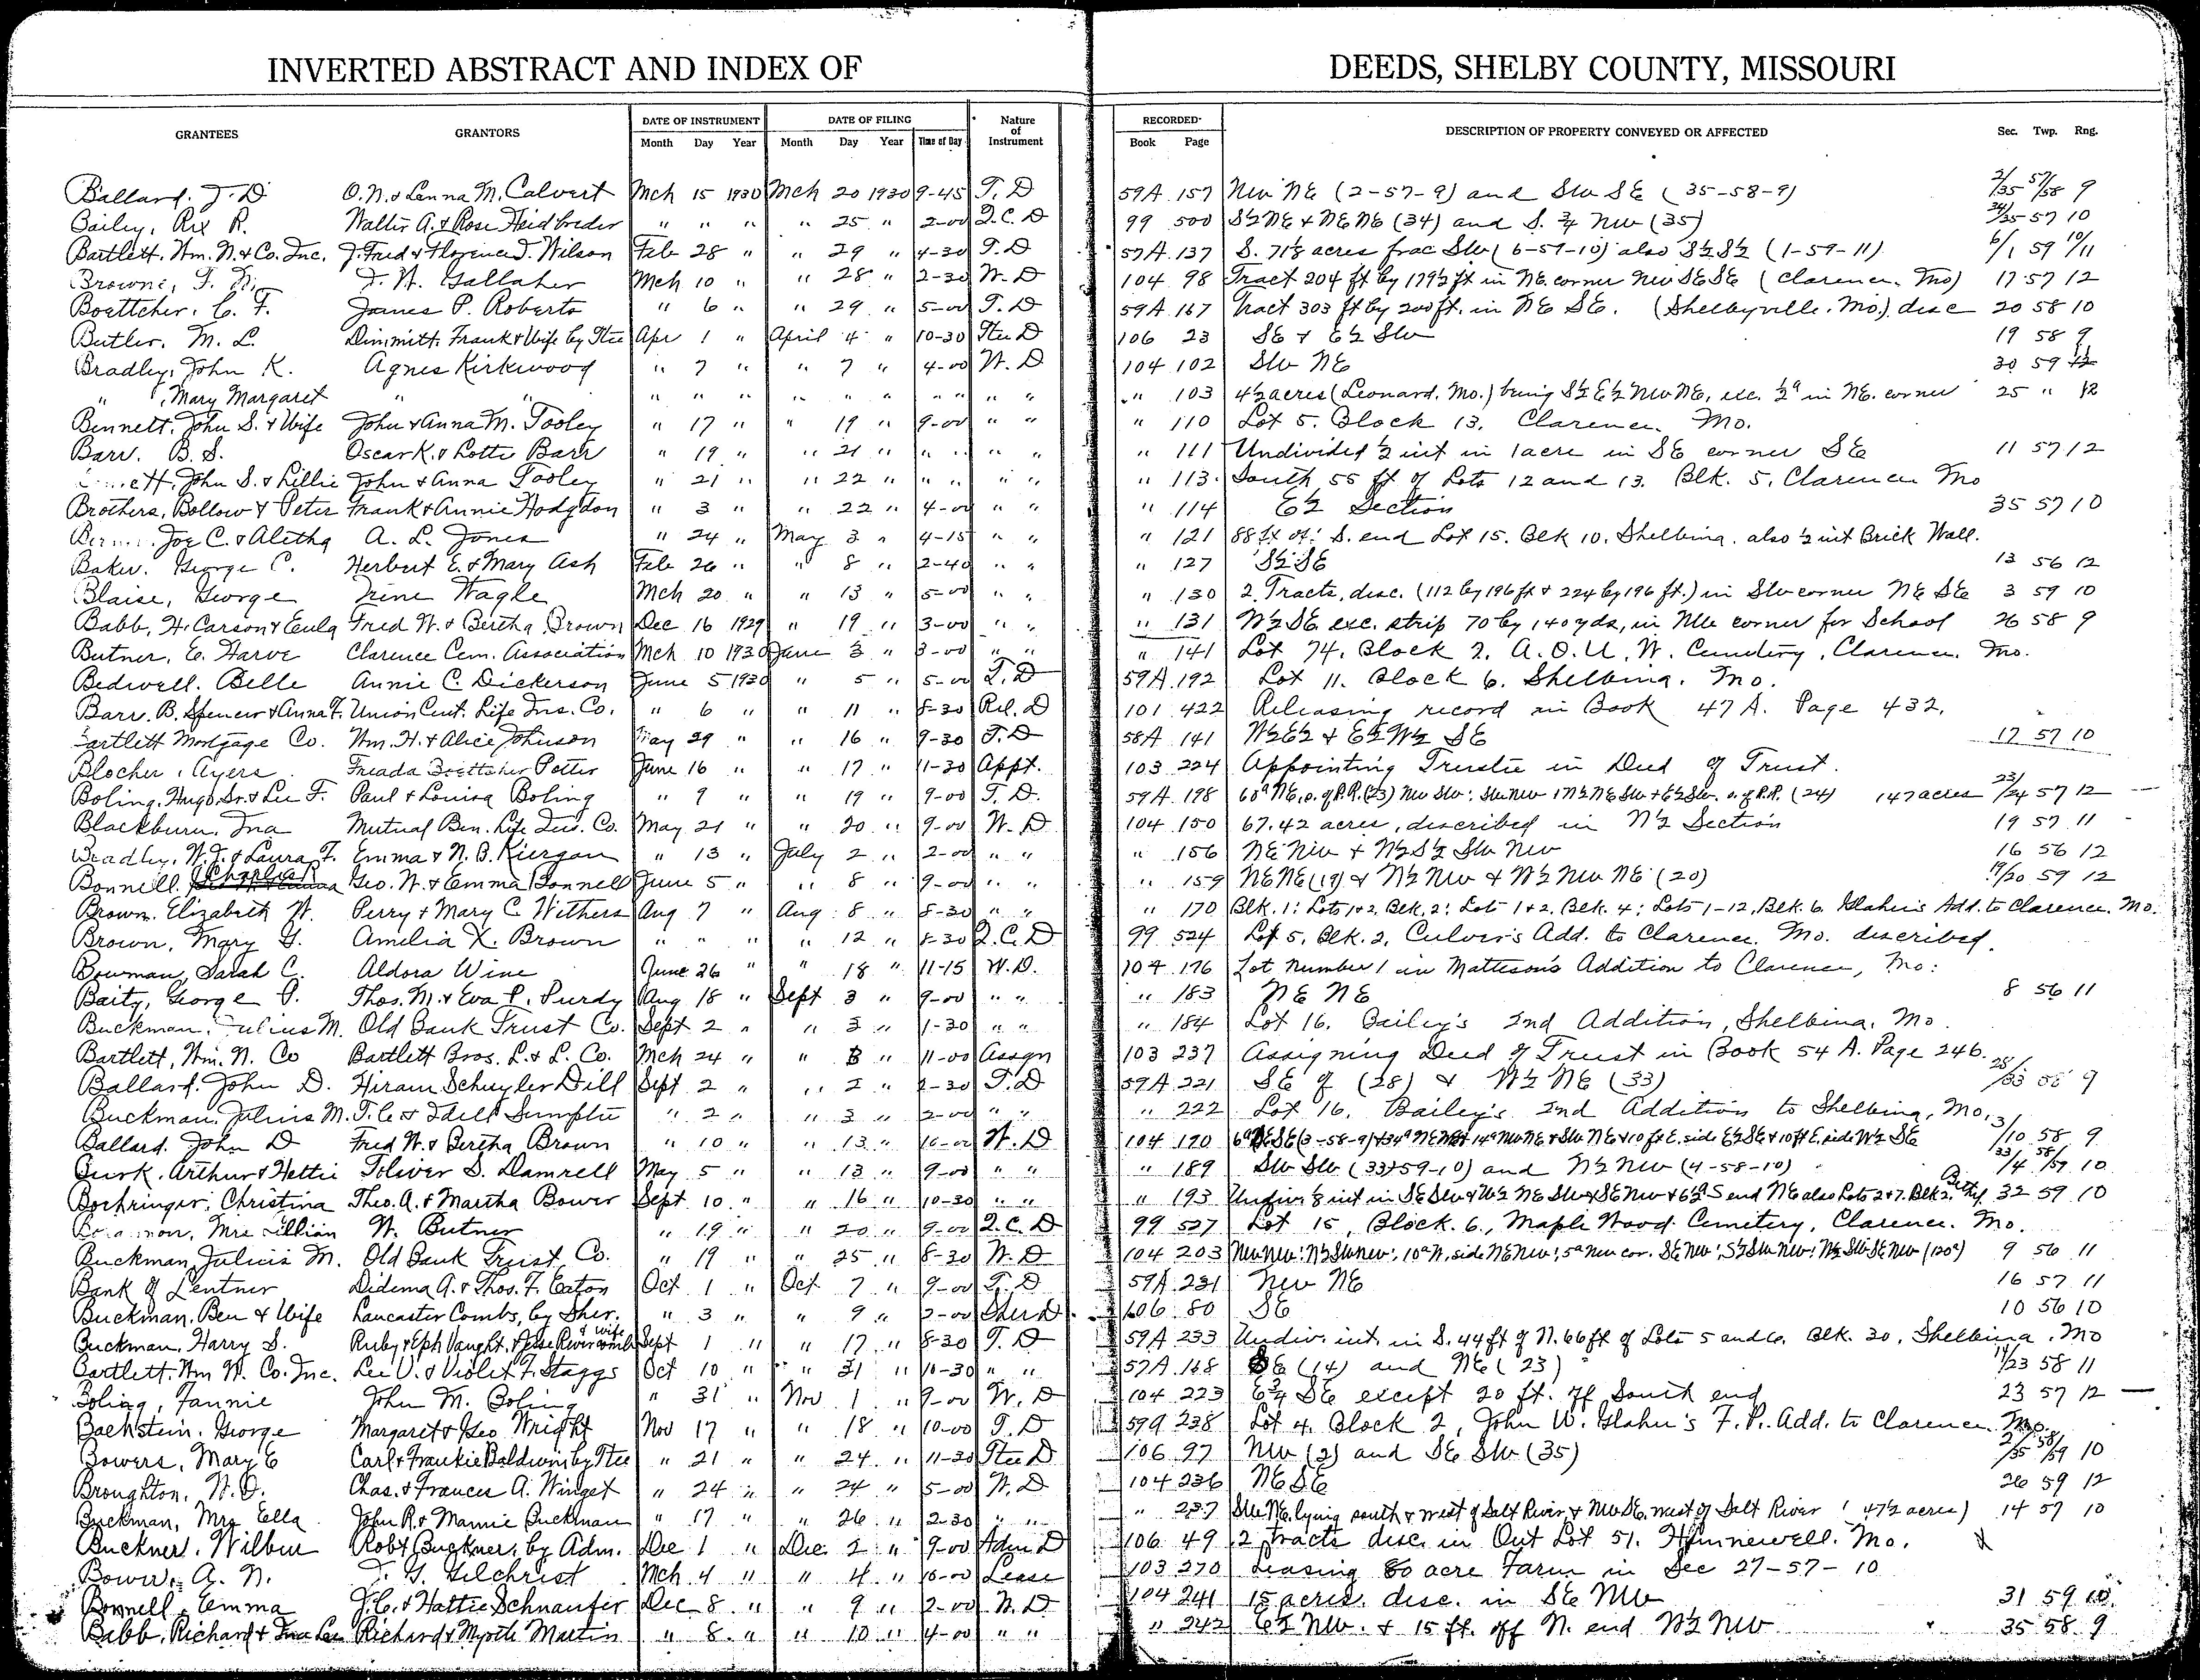 INVERTED ABSTRACT AND INDEX OF DEEDS, SHELBY COUNTY, MISSOURI
GRANTEES GRANTORS DATE OF INSTRUMENT DATE OF FILING Nature of Instrument RECORDED DESCRIPTION OF PROPERTY CONVEYED OR AFFECTED Sec. Twp. Rng.
Month Day Year Month Day Year Time of Day Book Page
Ballard, J. D O. N. & Lenna M. Calvert Mch 15 1930 Mch 20 1930 9-45 T. D 59A 157 NW NE (2-57-9) and SW SE (35-58-9) 2/35 57/58 9
Bailey, Rex R. Walter A. & Rose Heidbreder " " " " 25 " 2-00 Q.C. D 99 500 S½ NE & NE NE (34) and S. ¾ NW (35) 34/35 57 10
Bartlett, Wm. N. & Co. Inc. J. Fred & Florence J. Wilson Feb 28 " " 29 " 4-30 T. D 57A 137 S. 71½ acres frac SW (6-59-10) also S½ S½ (1-59-11) 6/1 59 10/11
Browne, F. J. W. Gallaher Mch 10 " " 28 " 2-30 W. D 104 98 Tract 204 ft by 179½ ft in NE corner NW SE SE (Clarence, Mo) 17 57 12
Boettcher, C. F. James P. Roberts " 6 " " 29 " 5-00 T. D 59A 167 Tract 303 ft by 200 ft. in NE SE. (Shelbyville, Mo.) disc 20 58 10
Butler, M. L. Dimmitt, Frank & Wife by Ttee Apr 1 " April 4 " 10-30 Ttee D 106 23 SE & E½ SW 19 58 9
Bradley, John K. Agnes Kirkwood " 7 " " 7 " 4-00 W. D 104 102 SW NE 30 59 12
" , Mary Margaret " " " " " " " " " " " " " 103 4½ acres (Leonard, Mo.) being S½ E½ NW NE, exc. ½ª in NE. corner 25 " 12
Bennett, John S. & Wife John & Anna M. Tooley " 17 " " 19 " 9-00 " " " 110 Lot 5. Block 13. Clarence. Mo.
Barr. B. S. Oscar K. & Lotte Barr " 19 " " 21 " " " " " " 111 Undivided ½ int in 1 acre in SE corner SE 11 57 12
John S. & Lillie John & Anna Tooley " 21 " " 22 " " " " " " 113 South 55 ft of Lots 12 and 13. Blk. 5. Clarence Mo
Brothers, Bollow & Peter Frank & Annie Hodgdon " 3 " " 22 " 4-00 " " " 114 E½ Section 35 57 10
Joe C. & Aletha A. L. Jones " 24 " May 3 " 4-15 " " " 121 88 ft of S. end Lot 15. Blk 10. Shelbina. also ½ int Brick Wall.
Baker, George C. Herbert E. & Mary Ash Feb 26 " " 8 " 2-40 " " " 127 S½ SE 13 56 12
Blaise, George Irene Nagle Mch 20 " " 13 " 5-00 " " " 130 2 Tracts, disc. (112 by 196 ft & 224 by 196 ft.) in SW corner NE SE 3 59 10
Babb, H. Carson & Eula Fred W. & Bertha Brown Dec 16 1929 " 19 " 3-00 " " " 131 W½ SE exc. strip 70 by 140 yds, in NW corner for School 26 58 9
Butner, E. Harve Clarence Cem. Association Mch 10 1930 June 3 " 3-00 " " " 141 Lot 74. Block 2. A. O. U. W. Cemetery, Clarence. Mo.
Bedwell. Belle Annie C. Dickerson June 5 1930 " 5 " 5-00 T. D 59A 192 Lot 11. Block 6. Shelbina. Mo.
Barr. B. Spencer & Anna F. Union Cent. Life Ins. Co. " 6 " " 11 " 8-30 Rel. D 101 422 Releasing record in Book 47 A. Page 432.
Bartlett Mortgage Co. Wm. H. & Alice Johnson May 29 " " 16 " 9-30 T. D 58A 141 W½ E½ & E½ W½ SE 17 57 10
Blocher, Ayers Freada Boettcher Potter June 16 " " 17 " 11-30 Appt. 103 224 Appointing Trustee in Deed of Trust.
Boling, Hugo, Sr. & Lee F. Paul & Louisa Boling " 9 " " 19 " 9-00 T. D. 59A 198 60ª NE, s. of R.R. (23) NW SW; SW NW; N½ NE SW & E½ SW. s. of R.R. (24) 147 acres 23/24 57 12
Blackburn, Ina Mutual Ben. Life Ins. Co. May 21 " " 20 " 9-00 W. D 104 150 67.42 acres, described in N½ Section 19 57 11
Bradley, W. T. & Laura F. Emma & N. B. Kiergan " 13 " July 2 " 2-00 " " " 156 NE NW & N½ S½ SW NW 16 56 12
Bonnell, Charlie R Geo. W. & Emma Bonnell June 5 " " 8 " 9-00 " " " 159 NE NE (19) & N½ NW & N½ NW NE (20) 19/20 59 12
Brown. Elizabeth W. Perry & Mary C Withers Aug 7 " Aug 8 " 8-30 " " " 170 Blk. 1; Lots 1+2, Blk. 2; Lots 1+2, Blk. 4; Lots 1-12, Blk. 6. Glahn's Add. to Clarence. Mo.
Brown, Mary G. Amelia X. Brown " " " " 12 " 8-30 Q. C. D 99 524 Lot 5, Blk. 2, Culver's Add. to Clarence. Mo. described.
Bowman, Sarah C. Aldora Wine June 26 " " 18 " 11-15 W. D. 104 176 Lot Number 1 in Matteson's Addition to Clarence, Mo.
Baity, George Thos. M. & Eva P. Purdy Aug 18 " Sept 3 " 9-00 " " " 183 NE NE 8 56 11
Buckman, Julius M. Old Bank Trust Co. Sept 2 " " 3 " 1-30 " " " 184 Lot 16. Bailey's 2nd Addition, Shelbina. Mo.
Bartlett, Wm. N. Co Bartlett Bros. L. & L. Co. Mch 24 " " 8 " 11-00 Assgn 103 237 Assigning Deed of Trust in Book 54 A. Page 246.
Ballard. John D. Hiram Schuyler Dill Sept 2 " " 2 " 2-30 T. D 59A 221 SE of (28) & N½ NE (33) 28/33 58 9
Buckman, Julius M. T. C. & Idell Sumpter " 2 " " 3 " 2-00 " " " 222 Lot 16. Bailey's 2nd Addition to Shelbina, Mo.
Ballard. John D Fred W. & Bertha Brown " 10 " " 13 " 10-00 W. D 104 170 3/10 58 9
Burk, Arthur & Hettie Toliver S. Damrell May 5 " " 13 " 9-00 " " " 189 SW SW (33-59-10) and N½ NW (4-58-10) 33/4 58/59 10
Boehringer, Christina Theo. A. & Martha Bower Sept 10 " " 16 " 10-30 " " " 193 Undiv. ⅛ int in SE SW & W½ NE SW & SE NW & 6½ª S end NE also Lots 2 & 7. Blk 2, Bethel 32 59 10
Mrs Lillian W. Butner " 19 " " 20 " 9-00 Q. C. D 99 527 Lot 15, Block. 6., Maple Wood Cemetery, Clarence. Mo.
Buckman, Julius M. Old Bank Trust Co. " 19 " " 25 " 8-30 W. D 104 203 NW NW; N½ SW NW; 10ª N. side NE NW; 5ª NW cor. SE NW; S½ SW NW; W½ SW SE NW (120ª) 9 56 11
Bank of Lentner Didema A. & Thos. F. Eaton Oct 1 " Oct 7 " 9-00 T. D 59A 231 NW NE 16 57 11
Buckman, Ben & Wife Lancaster Combs, by Sher. " 3 " " 9 " 2-00 Sher D. 106 80 SE 10 56 10
Buckman, Harry S. Ruby & Eph Vaught, & Jesse Rivercomb & Wife Sept 1 " " 17 " 8-30 T. D 59A 233 Undiv. int. in S. 44 ft of N. 66 ft of Lots 5 and 6. Blk. 30, Shelbina, Mo
Bartlett, Wm N. Co. Inc. Lee V. & Violet F. Staggs Oct 10 " " 31 " 10-30 " " 57A 168 SE (14) and NE (23) 14/23 58 11
Boling, Fannie John M. Boling " 31 " Nov 1 " 9-00 W. D 104 223 E¾ SE except 20 ft. off South end 23 57 12
Bachstein. George Margaret & Geo Wright Nov 17 " " 18 " 10-00 T. D 59A 238 Lot 4. Block 2, John W. Glahn's F. P. Add. to Clarence. Mo.
Bowers, Mary E Carl & Frankie Baldwin by Ttee " 21 " " 24 " 11-30 Ttee D 106 97 NW (2) and SE SW (35) 2/35 58/59 10
Broughton, W. O. Chas. & Frances A. Winget " 24 " " 24 " 5-00 W. D 104 236 NE SE 26 59 12
Buckman, Mrs Ella John R. & Mamie Buckman " 17 " " 26 " 2-30 " " " 237 SW NE, lying south & west of Salt River, & NW SE, west of Salt River (47½ acres) 14 57 10
Buckner. Wilbur Robt Buckner, by Adm. Dec 1 " Dec 2 " 9-00 Adm D 106 49 2 tracts disc. in Out Lot 51. Hunnewell. Mo.
Bower, A. N. T. G. Gilchrist Mch 4 " " 4 " 10-00 Lease 103 270 Leasing 80 acre Farm in Sec 27-57-10
Bonnell, Emma J. C. & Hattie Schnaufer Dec 8 " " 9 " 2-00 W. D 104 241 15 acres. disc. in SE NW 31 59 10
Babb, Richard & Richard & Myrtle Martin " 8 " " 10 " 4-00 " " " 242 E½ NW. & 15 ft. off N. end W½ NW 35 58 9